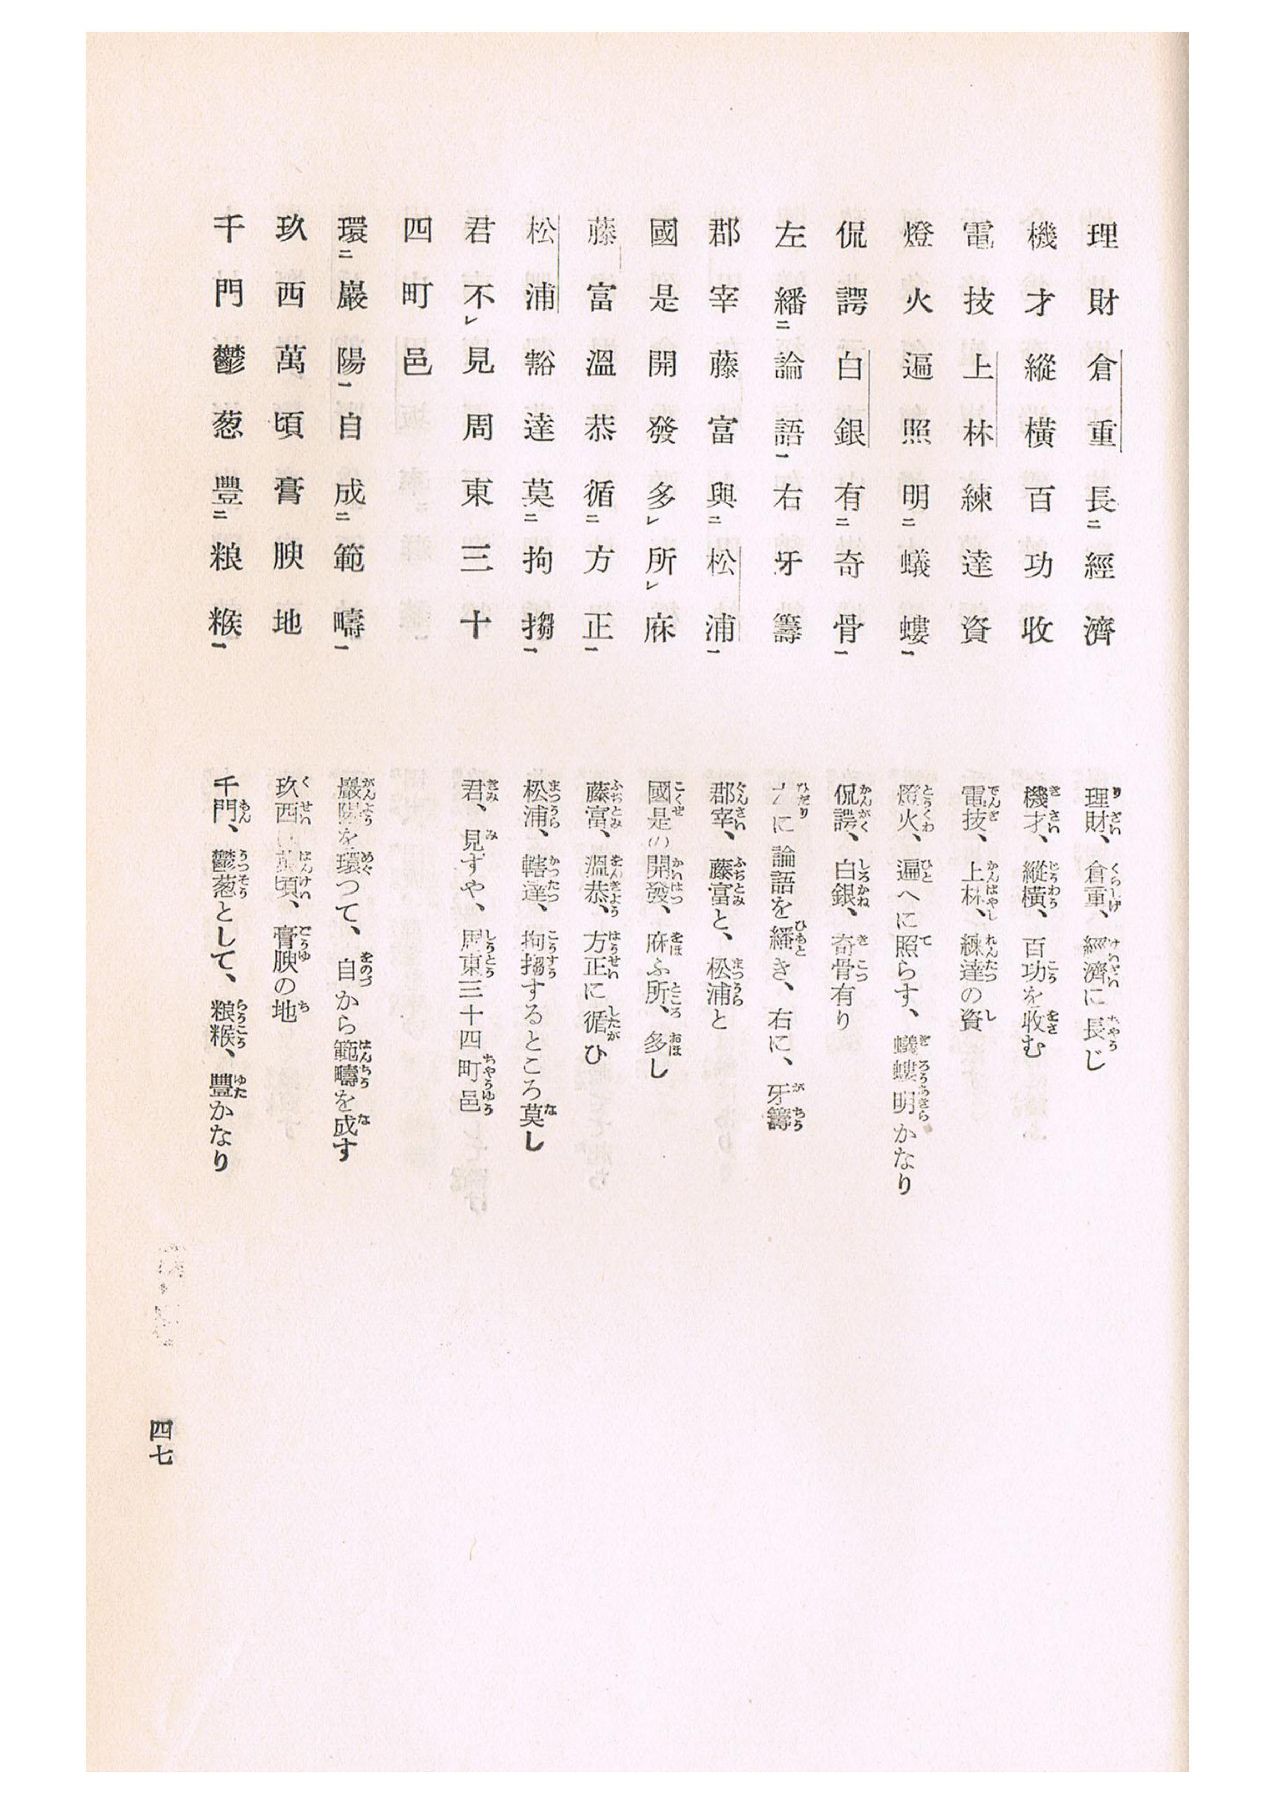 理財倉重長二經濟
機才縱橫百功收
電技上林練達資
燈火遍照明二蟻螻一
侃諤白銀有二奇骨一
左繙二論語一右牙籌
郡宰藤富與二松浦一
國是開發多レ所レ庥
藤富溫恭循二方正一
松浦豁達莫二拘搊一
君不レ見周東三十
四町邑
環二巖陽一自成二範疇一
玖西萬頃膏腴地
千門鬱葱豐二粮糇一
理財、倉重、經濟に長じ
機才、縱橫、百功を收む
電技、上林、練達の資
燈火、遍へに照らす、蟻螻明かなり
侃諤、白銀、奇骨有り
左に論語を繙き、右に、牙籌
郡宰、藤富と、松浦と
國是の開發、庥ふ所、多し
藤富、溫恭、方正に循ひ
松浦、轄達、拘搊するところ莫し
君、見ずや、周東三十四町邑
巖陽を環つて、自から範疇を成す
玖西萬頃、膏腴の地
千門、鬱葱として、粮糇、豐かなり
四七